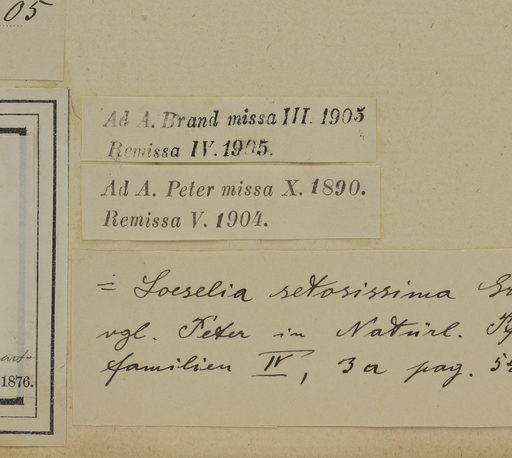 05
Ad A. Brand missa III. 1905
Remissa IV. 1905.
Ad A. Peter missa X. 1890.
Remissa V. 1904.
= Loeselia setosissima
vgl. Peter in Natürl.
familien IV, 3a pag. 5
1876.